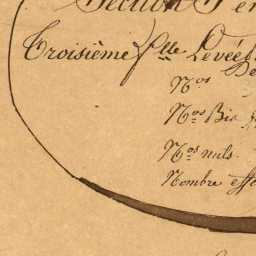 Section
Troisième flle Levée
De
Nos
Nos Bis
Nos nuls.
Nombre effe